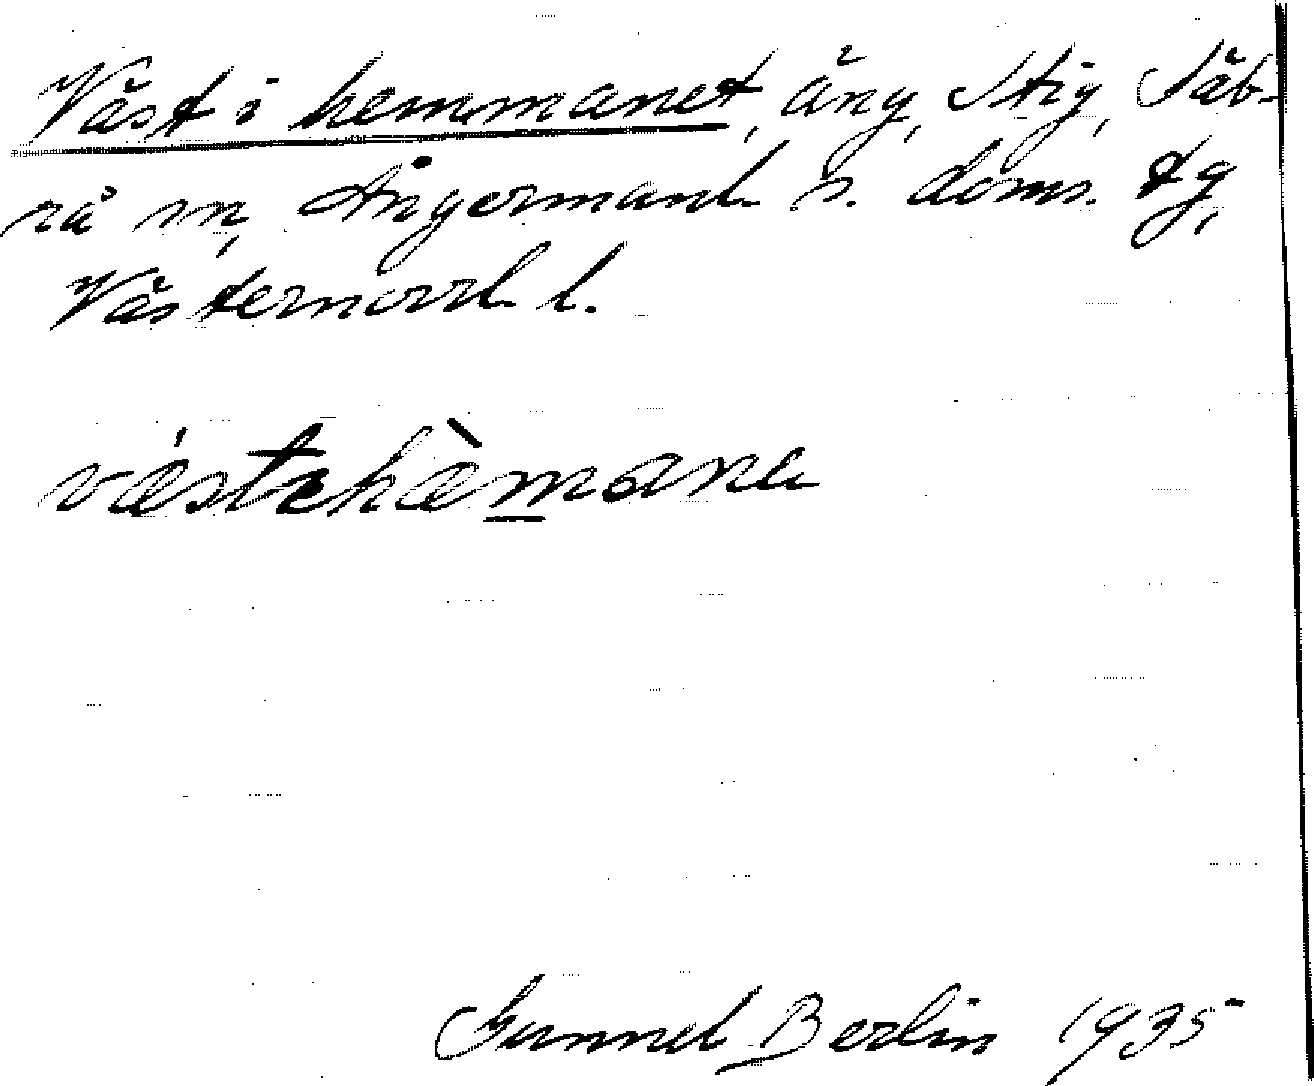 Väst i hemmanet, äng, Stig, Säb-
rå sn, Ångermanl. s. doms. tg,
Västernorrl. l.
væ̀stɩhæ̀mana
Gunnel Berlin 1935